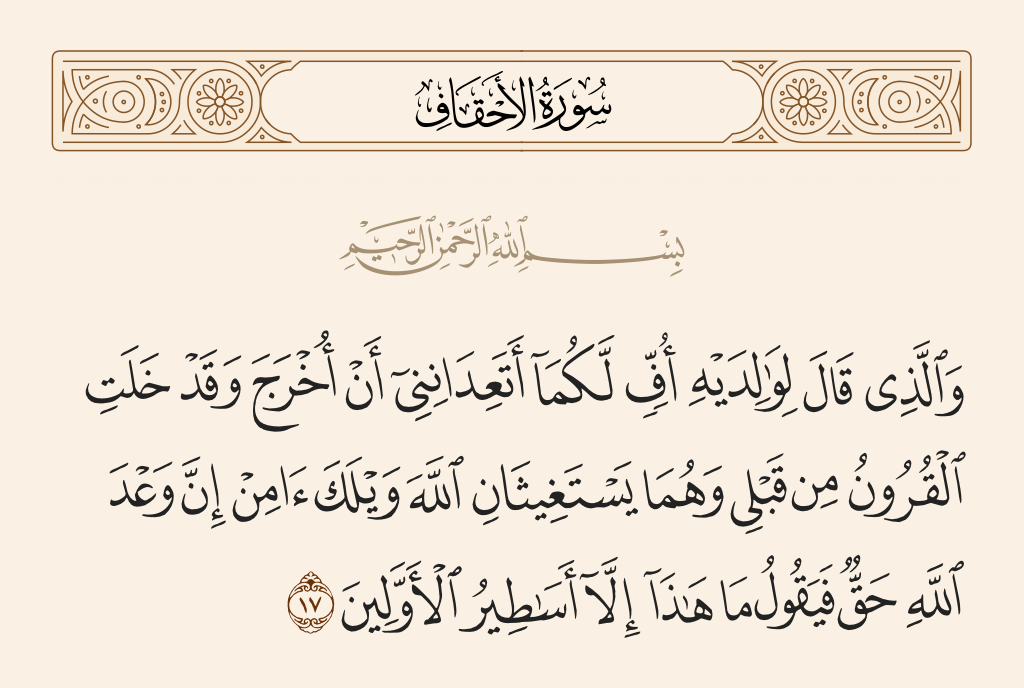 سُورَةُ الأَحْقَافِ
بِسْمِ ٱللَّهِ ٱلرَّحْمَٰنِ ٱلرَّحِيمِ
وَٱلَّذِى قَالَ لِوَٰلِدَيْهِ أُفٍّ لَّكُمَآ أَتَعِدَانِنِىٓ أَنْ أُخْرَجَ وَقَدْ خَلَتِ
ٱلْقُرُونُ مِن قَبْلِى وَهُمَا يَسْتَغِيثَانِ ٱللَّهَ وَيْلَكَ ءَامِنْ إِنَّ وَعْدَ
ٱللَّهِ حَقٌّ فَيَقُولُ مَا هَٰذَآ إِلَّآ أَسَٰطِيرُ ٱلْأَوَّلِينَ ١٧